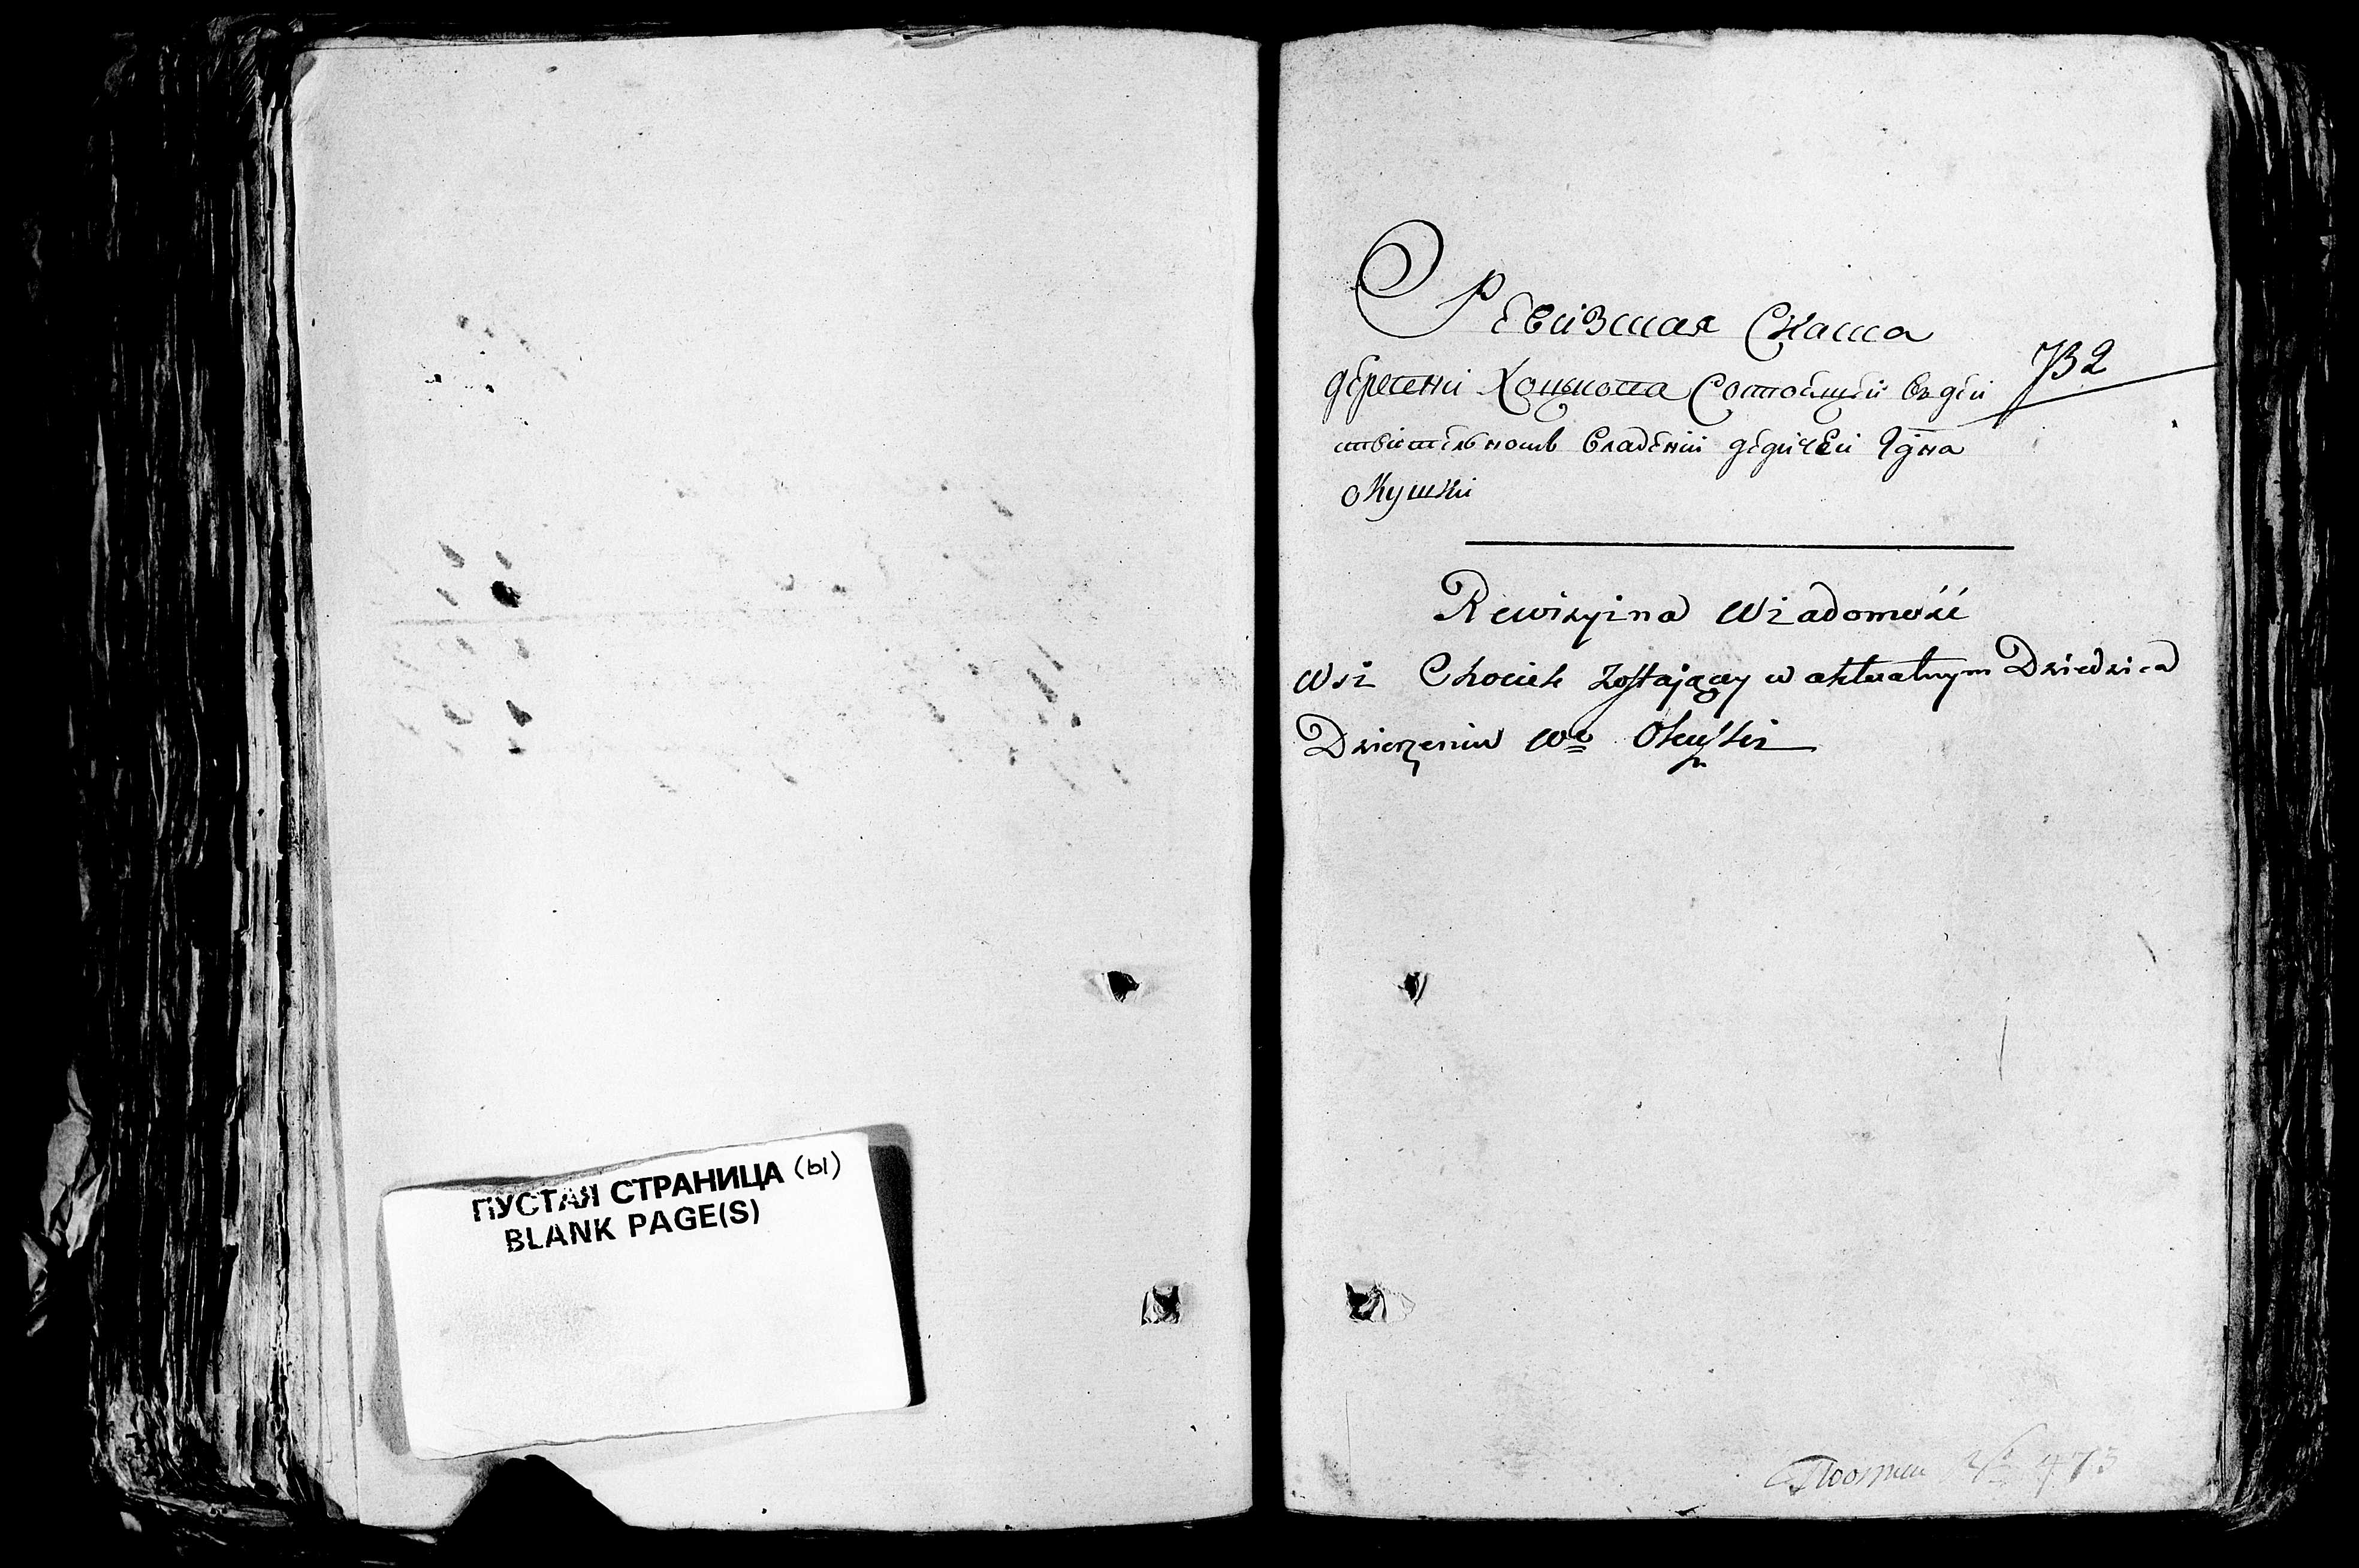 ПУСТАЯ СТРАНИЦА (ы)
BLANK PAGE(S)
Ревизская Сказка
732
деревни Состоящей въ дей
ствительномъ владении дедичеи Игна
окушки
Rewizyina Wiadomość
wsi Chociek zostaiącey w aktualnym Dziedzica
Dzierzeniu W° Okuszki
473